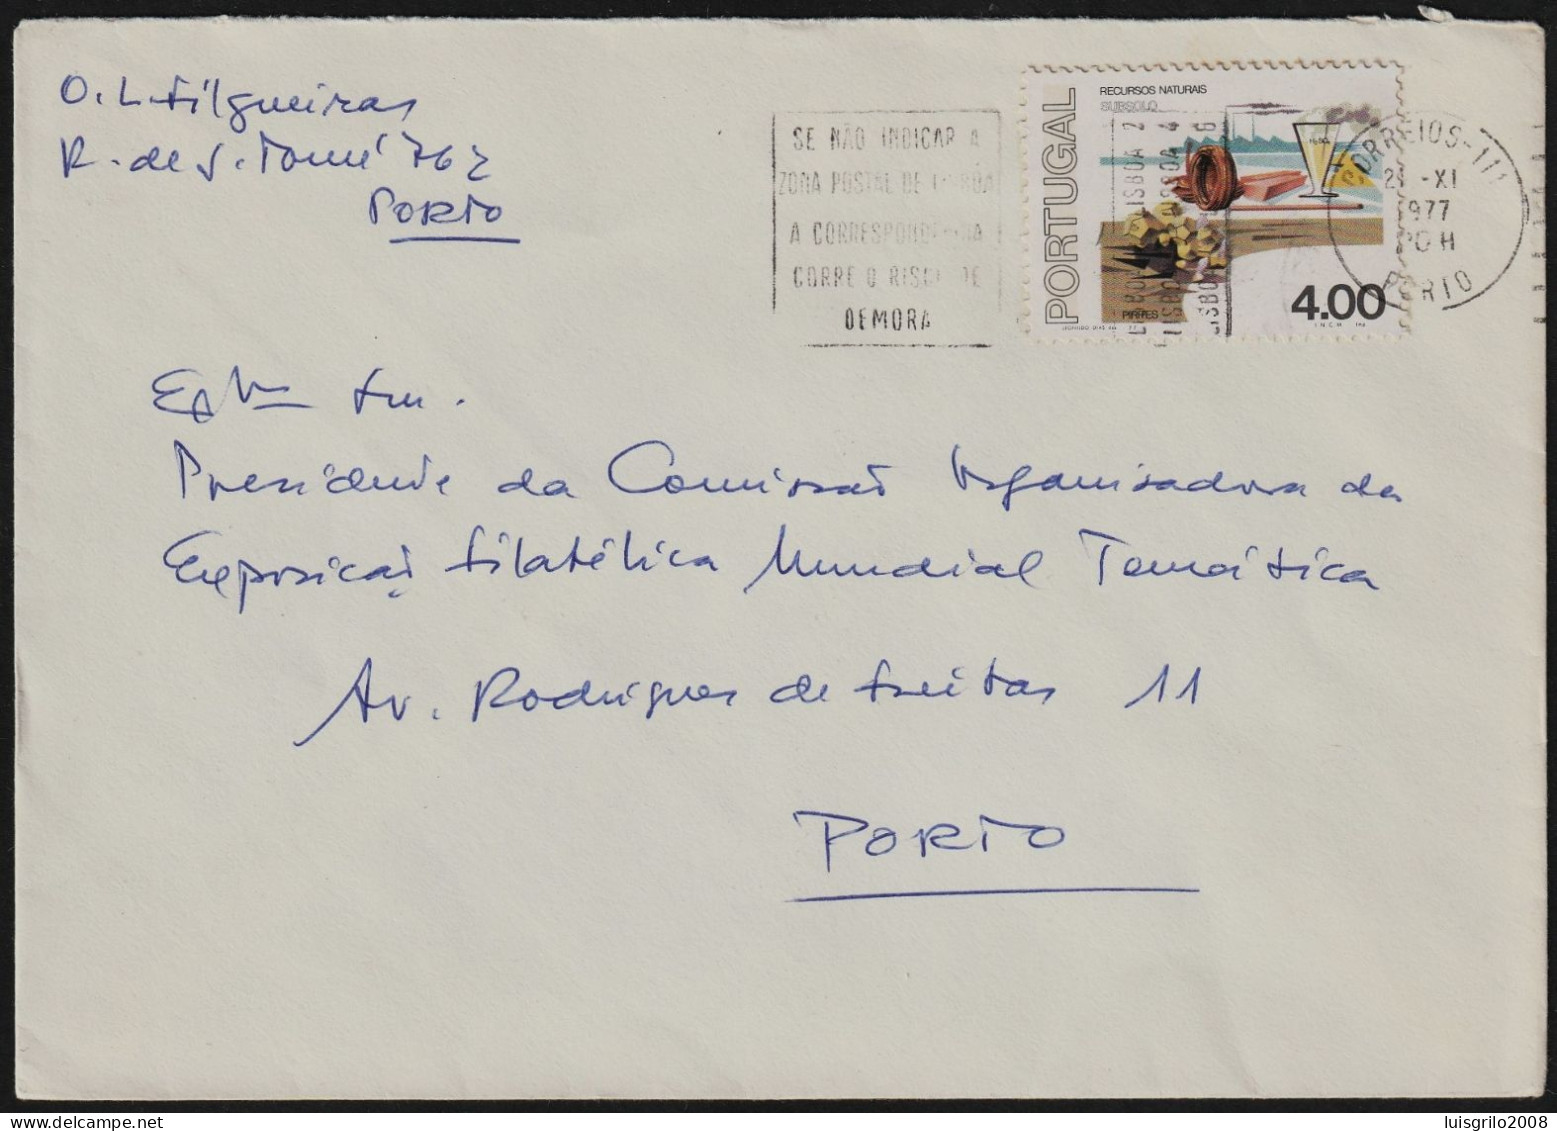 O. L. Filgueiras
R. de S. Tomé 762
PORTO
SE NÃO INDICAR A
ZONA POSTAL DE LISBOA
A CORRESPONDENCIA
CORRE O RISCO DE
DEMORA
LISBOA 2
LISBOA 4
LISBOA 6
LISBOA
LISBOA
LISBOA
PORTUGAL
RECURSOS NATURAIS
SUBSOLO
PIRITES
4.00
INCM
CORREIOS
-XI
1977
20H
PORTO
Exmo Snr.
Presidente da Comissão Organisadora da
Exposição Filatélica Mundial Temática
Av. Rodrigues de Freitas 11
PORTO
luisgrilo2008